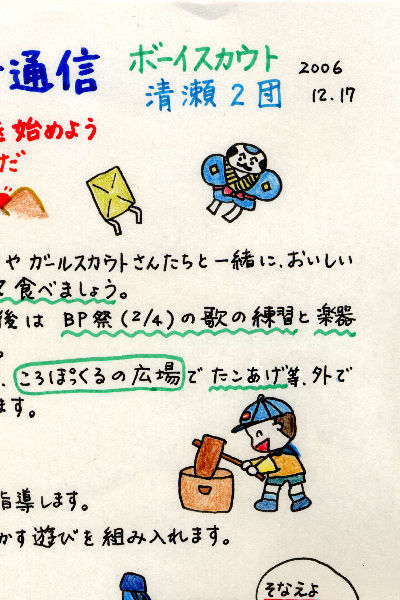 通信
ボーイスカウト
清瀬2団
2006
12.17
を始めよう
だ
や ガールスカウトさんたちと一緒に、おいしい
て食べましょう。
後は BP祭(2/4)の歌の練習と楽器
。
、ころぽっくるの広場でたこあげ等、外で
ます。
指導します。
かす遊びを組み入れます。
そなえよ